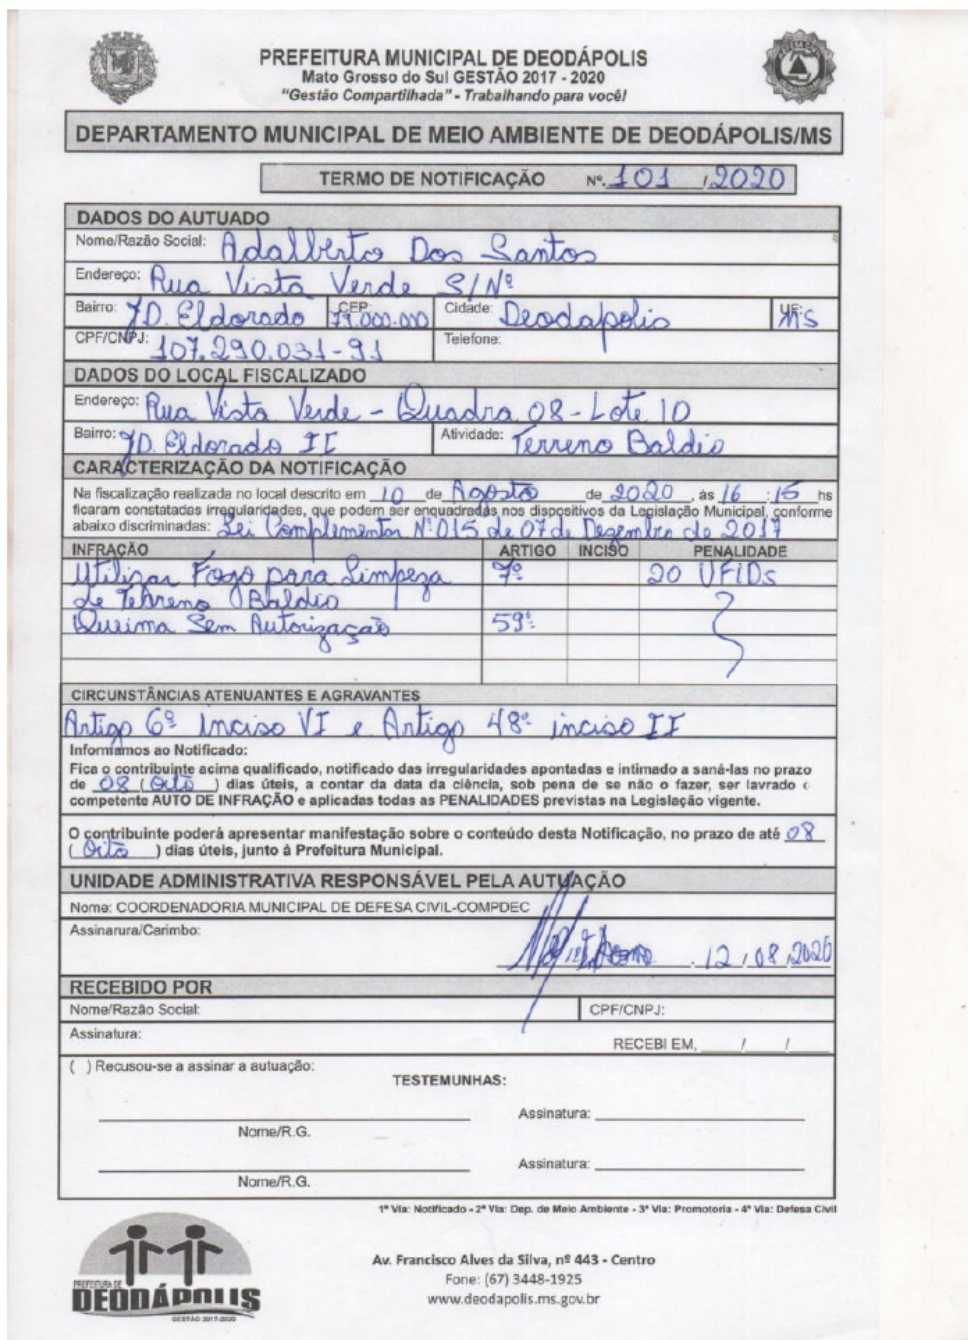 PREFEITURA MUNICIPAL DE DEODÁPOLIS
Mato Grosso do Sul GESTÃO 2017 - 2020
"Gestão Compartilhada" - Trabalhando para você!
DEPARTAMENTO MUNICIPAL DE MEIO AMBIENTE DE DEODÁPOLIS/MS
TERMO DE NOTIFICAÇÃO Nº. 101 / 2020
DADOS DO AUTUADO
Nome/Razão Social: Adalberto Dos Santos
Endereço: Rua Vista Verde S/Nº
Bairro: JD. Eldorado CEP: 77.000.000 Cidade: Deodapolis UF: MS
CPF/CNPJ: 107.290.031-91 Telefone:
DADOS DO LOCAL FISCALIZADO
Endereço: Rua Vista Verde - Quadra 08 - Lote 10
Bairro: JD. Eldorado II Atividade: Terreno Baldio
CARACTERIZAÇÃO DA NOTIFICAÇÃO
Na fiscalização realizada no local descrito em 10 de Agosto de 2020, às 16 :15 hs
ficaram constatadas irregularidades, que podem ser enquadradas nos dispositivos da Legislação Municipal, conforme
abaixo discriminadas: Lei Complementar Nº 015 de 07 de Dezembro de 2017
INFRAÇÃO ARTIGO INCISO PENALIDADE
Utilizar Fogo para Limpeza 7º 20 UFIDs
de Terreno Baldio
Queima Sem Autorização 59º
CIRCUNSTÂNCIAS ATENUANTES E AGRAVANTES
Artigo 6º inciso VI e Artigo 48º inciso II
Informamos ao Notificado:
Fica o contribuinte acima qualificado, notificado das irregularidades apontadas e intimado a saná-las no prazo
de 08 (Oito) dias úteis, a contar da data da ciência, sob pena de se não o fazer, ser lavrado o
competente AUTO DE INFRAÇÃO e aplicadas todas as PENALIDADES previstas na Legislação vigente.
O contribuinte poderá apresentar manifestação sobre o conteúdo desta Notificação, no prazo de até 08
( Oito ) dias úteis, junto à Prefeitura Municipal.
UNIDADE ADMINISTRATIVA RESPONSÁVEL PELA AUTUAÇÃO
Nome: COORDENADORIA MUNICIPAL DE DEFESA CIVIL-COMPDEC
Assinarura/Carimbo:
12 / 08 / 2020
RECEBIDO POR
Nome/Razão Social: CPF/CNPJ:
Assinatura: RECEBI EM, / /
( ) Recusou-se a assinar a autuação:
TESTEMUNHAS:
Assinatura:
Nome/R.G.
Assinatura:
Nome/R.G.
1ª Via: Notificado - 2ª Via: Dep. de Meio Ambiente - 3ª Via: Promotoria - 4ª Via: Defesa Civil
PREFEITURA DE
DEODÁPOLIS
GESTÃO 2017-2020
Av. Francisco Alves da Silva, nº 443 - Centro
Fone: (67) 3448-1925
www.deodapolis.ms.gov.br